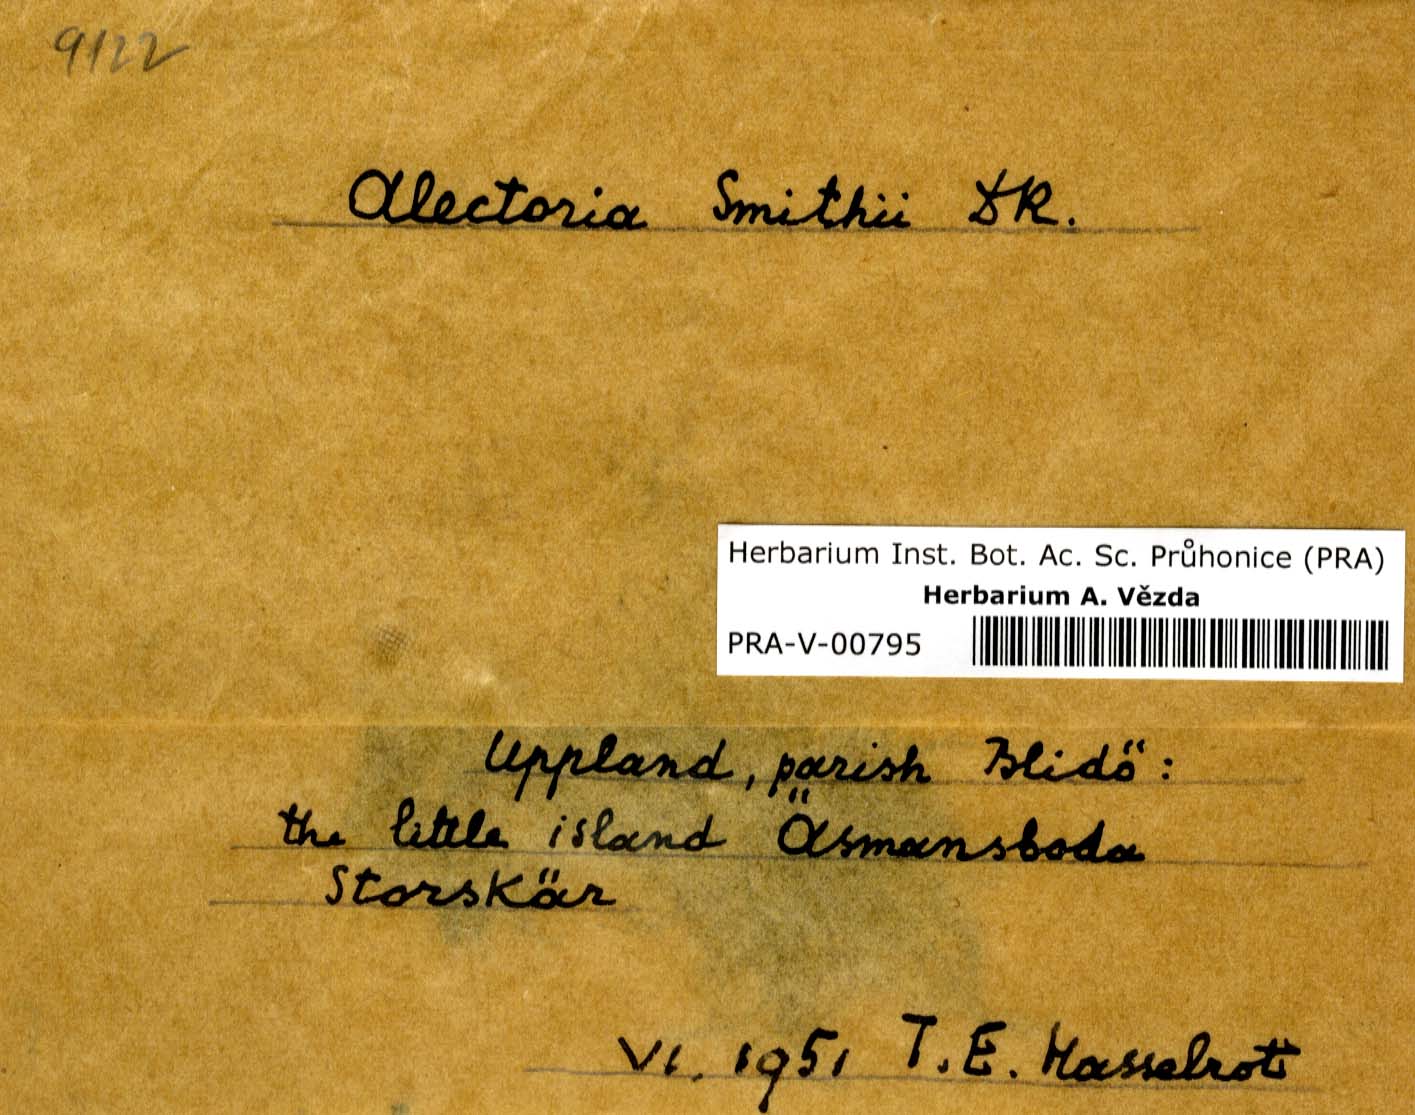 9122
Alectoria Smithii DR.
Herbarium Inst. Bot. Ac. Sc. Průhonice (PRA)
Herbarium A. Vězda
PRA-V-00795
Uppland, parish Blidö:
the little island Äsmansboda
Storskär
VI. 1951 T. E. Hasselrot